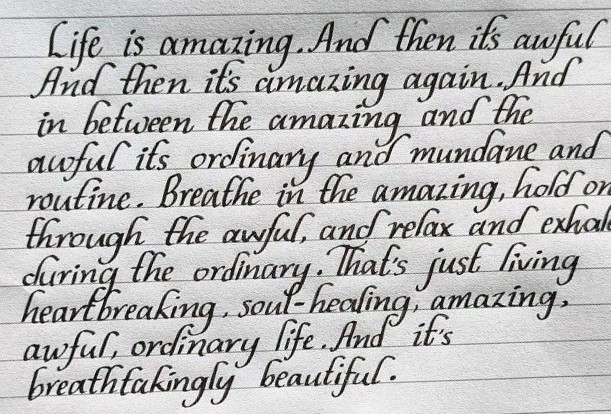 Life is amazing. And then its awful
And then it's amazing again. And
in between the amazing and the
awful its ordinary and mundane and
routine. Breathe in the amazing, hold on
through the awful, and relax and exhale
during the ordinary. That's just living
heartbreaking, soul-healing, amazing,
awful, ordinary life. And it's
breathtakingly beautiful.